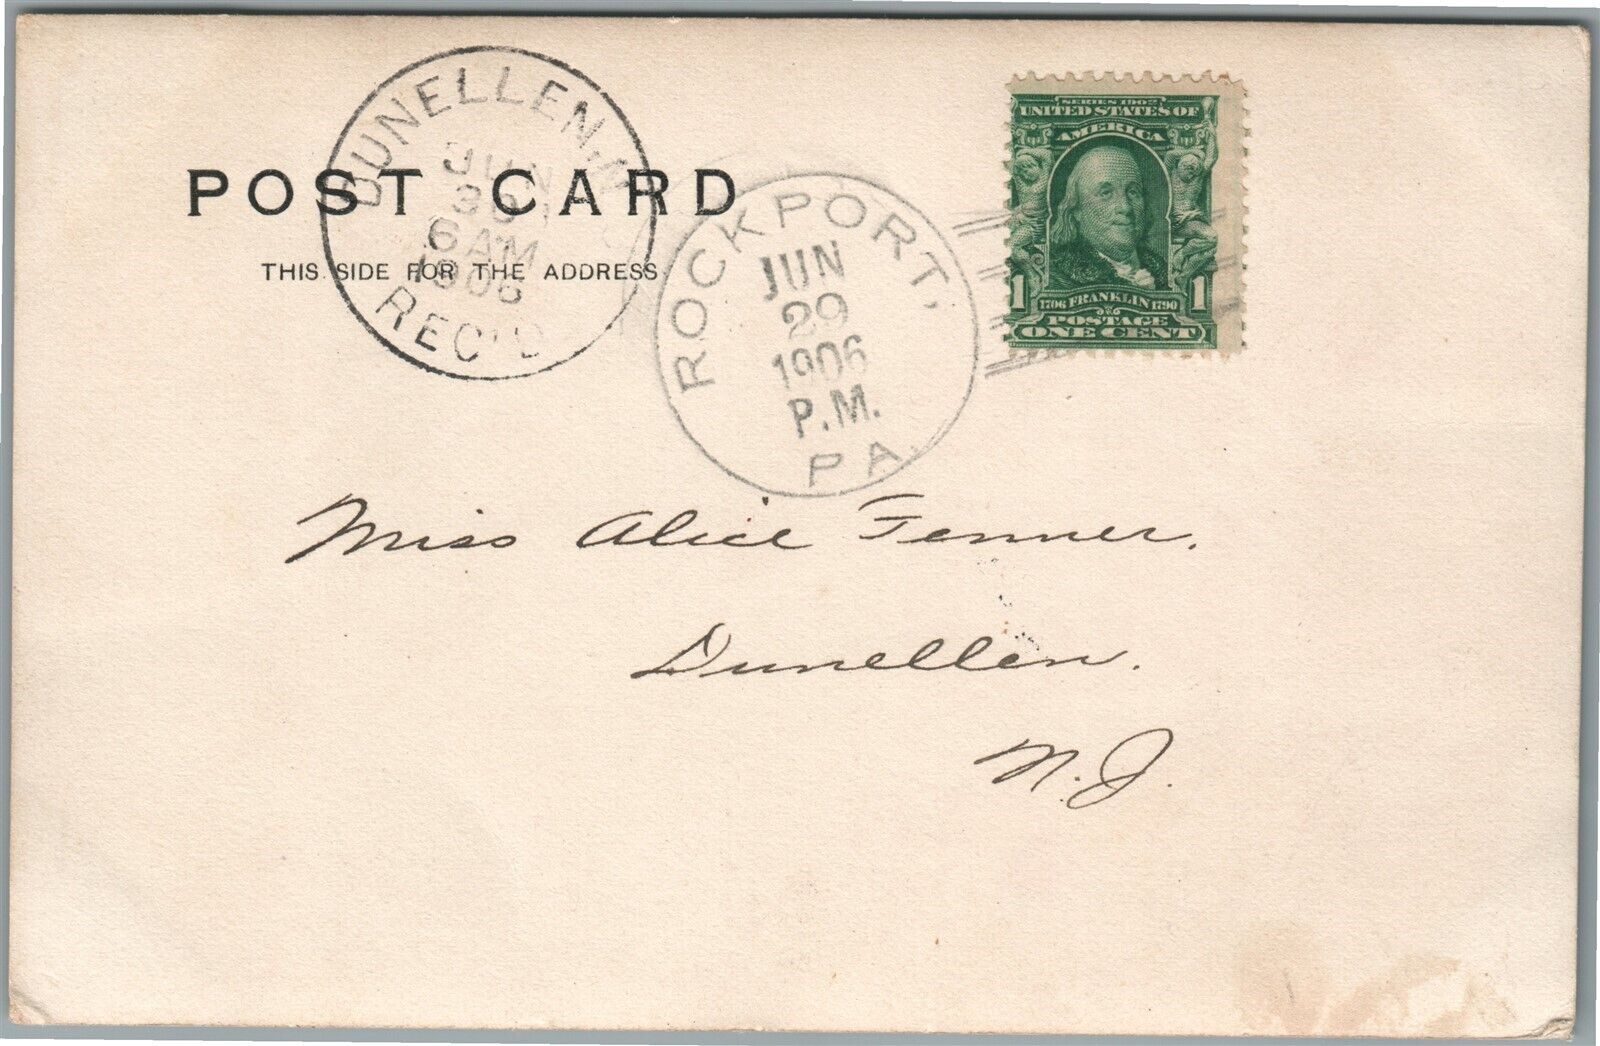 DUNELLEN, N
JUN
30
6 AM
1906
REC'D
POST CARD
THIS SIDE FOR THE ADDRESS
ROCKPORT,
JUN
29
1906
P.M.
PA.
SERIES 1902
UNITED STATES OF
AMERICA
1 1706 FRANKLIN 1790 1
POSTAGE
ONE CENT
Miss Alice Fenner.
Dunellen.
N.J.